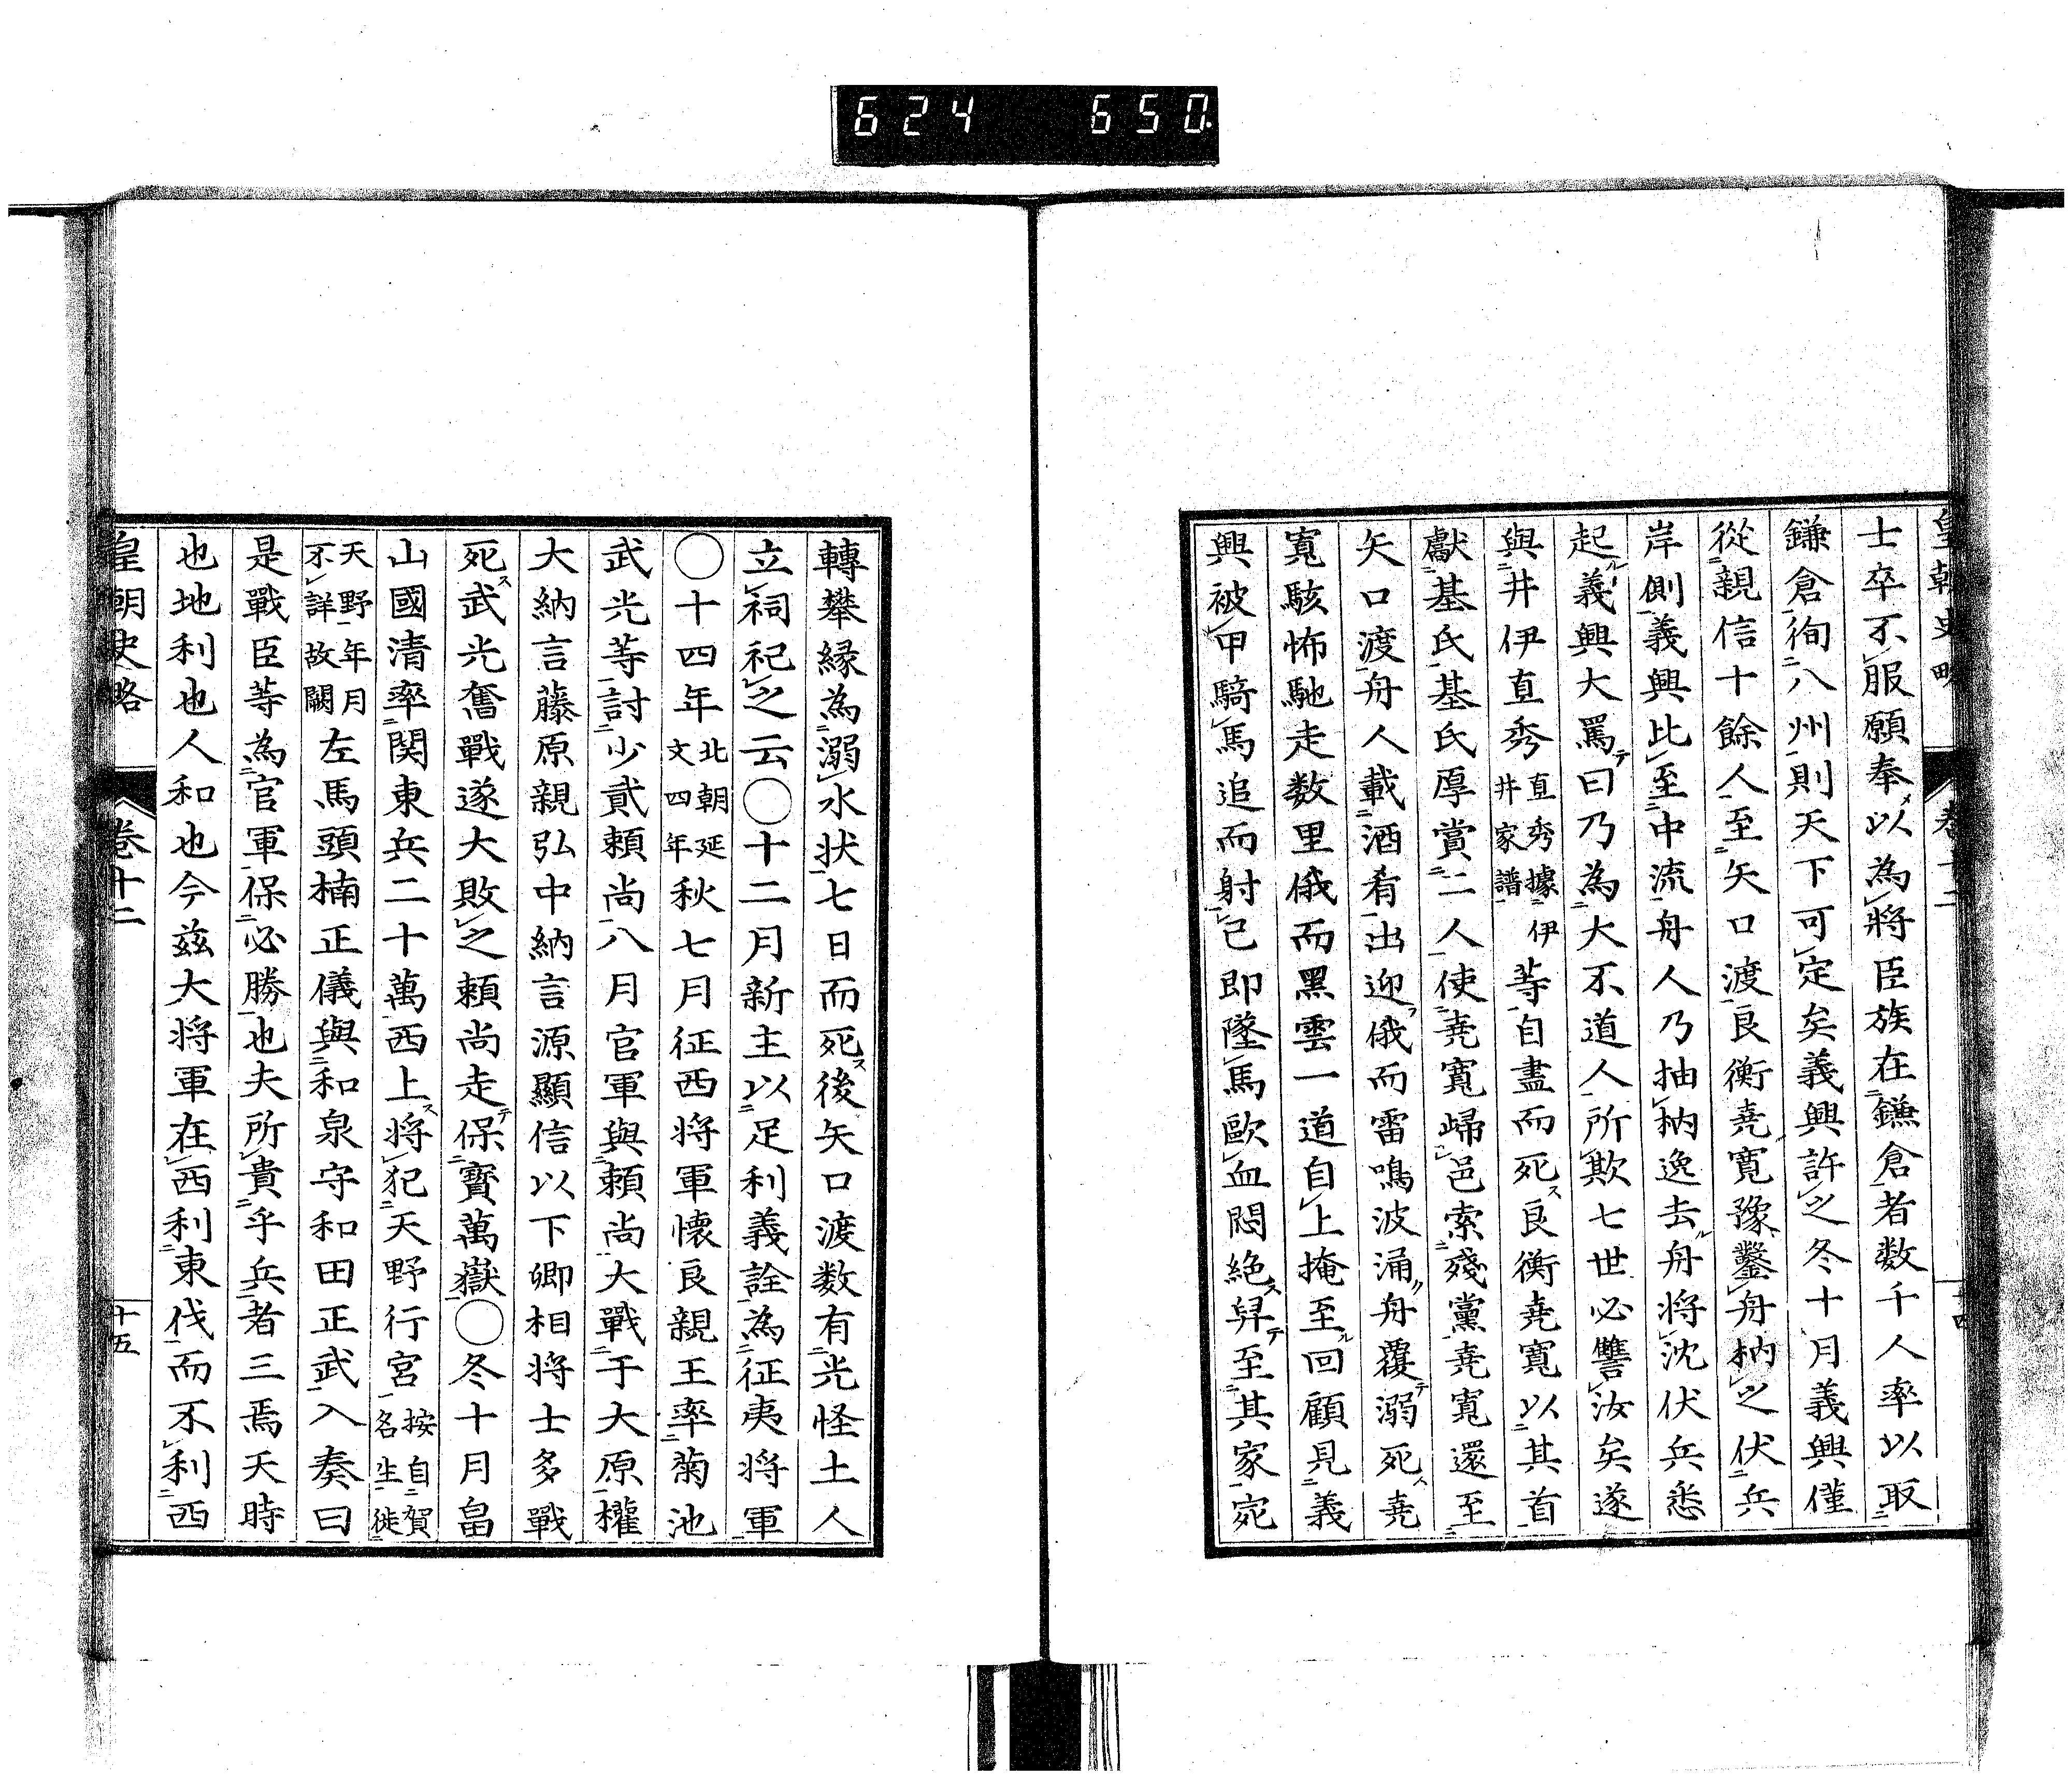 624 650.
皇朝史略 卷十二 十四
士卒不服願奉以為將臣族在鎌倉者数千人率以取
鎌倉徇八州則天下可定矣義興許之冬十月義興僅
從親信十餘人至矢口渡良衡尭寛豫鑿舟枘之伏兵
岸側義興比至中流舟人乃抽枘逸去舟将沈伏兵悉
起義興大罵曰乃為大不道人所欺七世必讐汝矣遂
與井伊直秀直秀據伊井家譜等自盡而死良衡尭寛以其首
獻基氏基氏厚賞二人使尭寛歸邑索殘黨尭寛還至
矢口渡舟人載酒肴出迎俄而雷鳴波涌舟覆溺死尭
寛駭怖馳走数里俄而黑雲一道自上掩至回顧見義
興被甲騎馬追而射己即墜馬歐血悶絶舁至其家宛
轉攀縁為溺水状七日而死後矢口渡数有光怪土人
立祠祀之云〇十二月新主以足利義詮為征夷将軍
〇十四年北朝延文四年秋七月征西将軍懐良親王率菊池
武光等討少貳頼尚八月官軍與頼尚大戰于大原權
大納言藤原親弘中納言源顯信以下卿相将士多戰
死武光奮戰遂大敗之頼尚走保寶萬嶽〇冬十月畠
山國清率関東兵二十萬西上将犯天野行宮按自賀名生徙
天野年月不詳故闕左馬頭楠正儀與和泉守和田正武入奏曰
是戰臣等為官軍保必勝也夫所貴乎兵者三焉天時
也地利也人和也今茲大将軍在西利東伐而不利西
皇朝史略 卷十二 十五